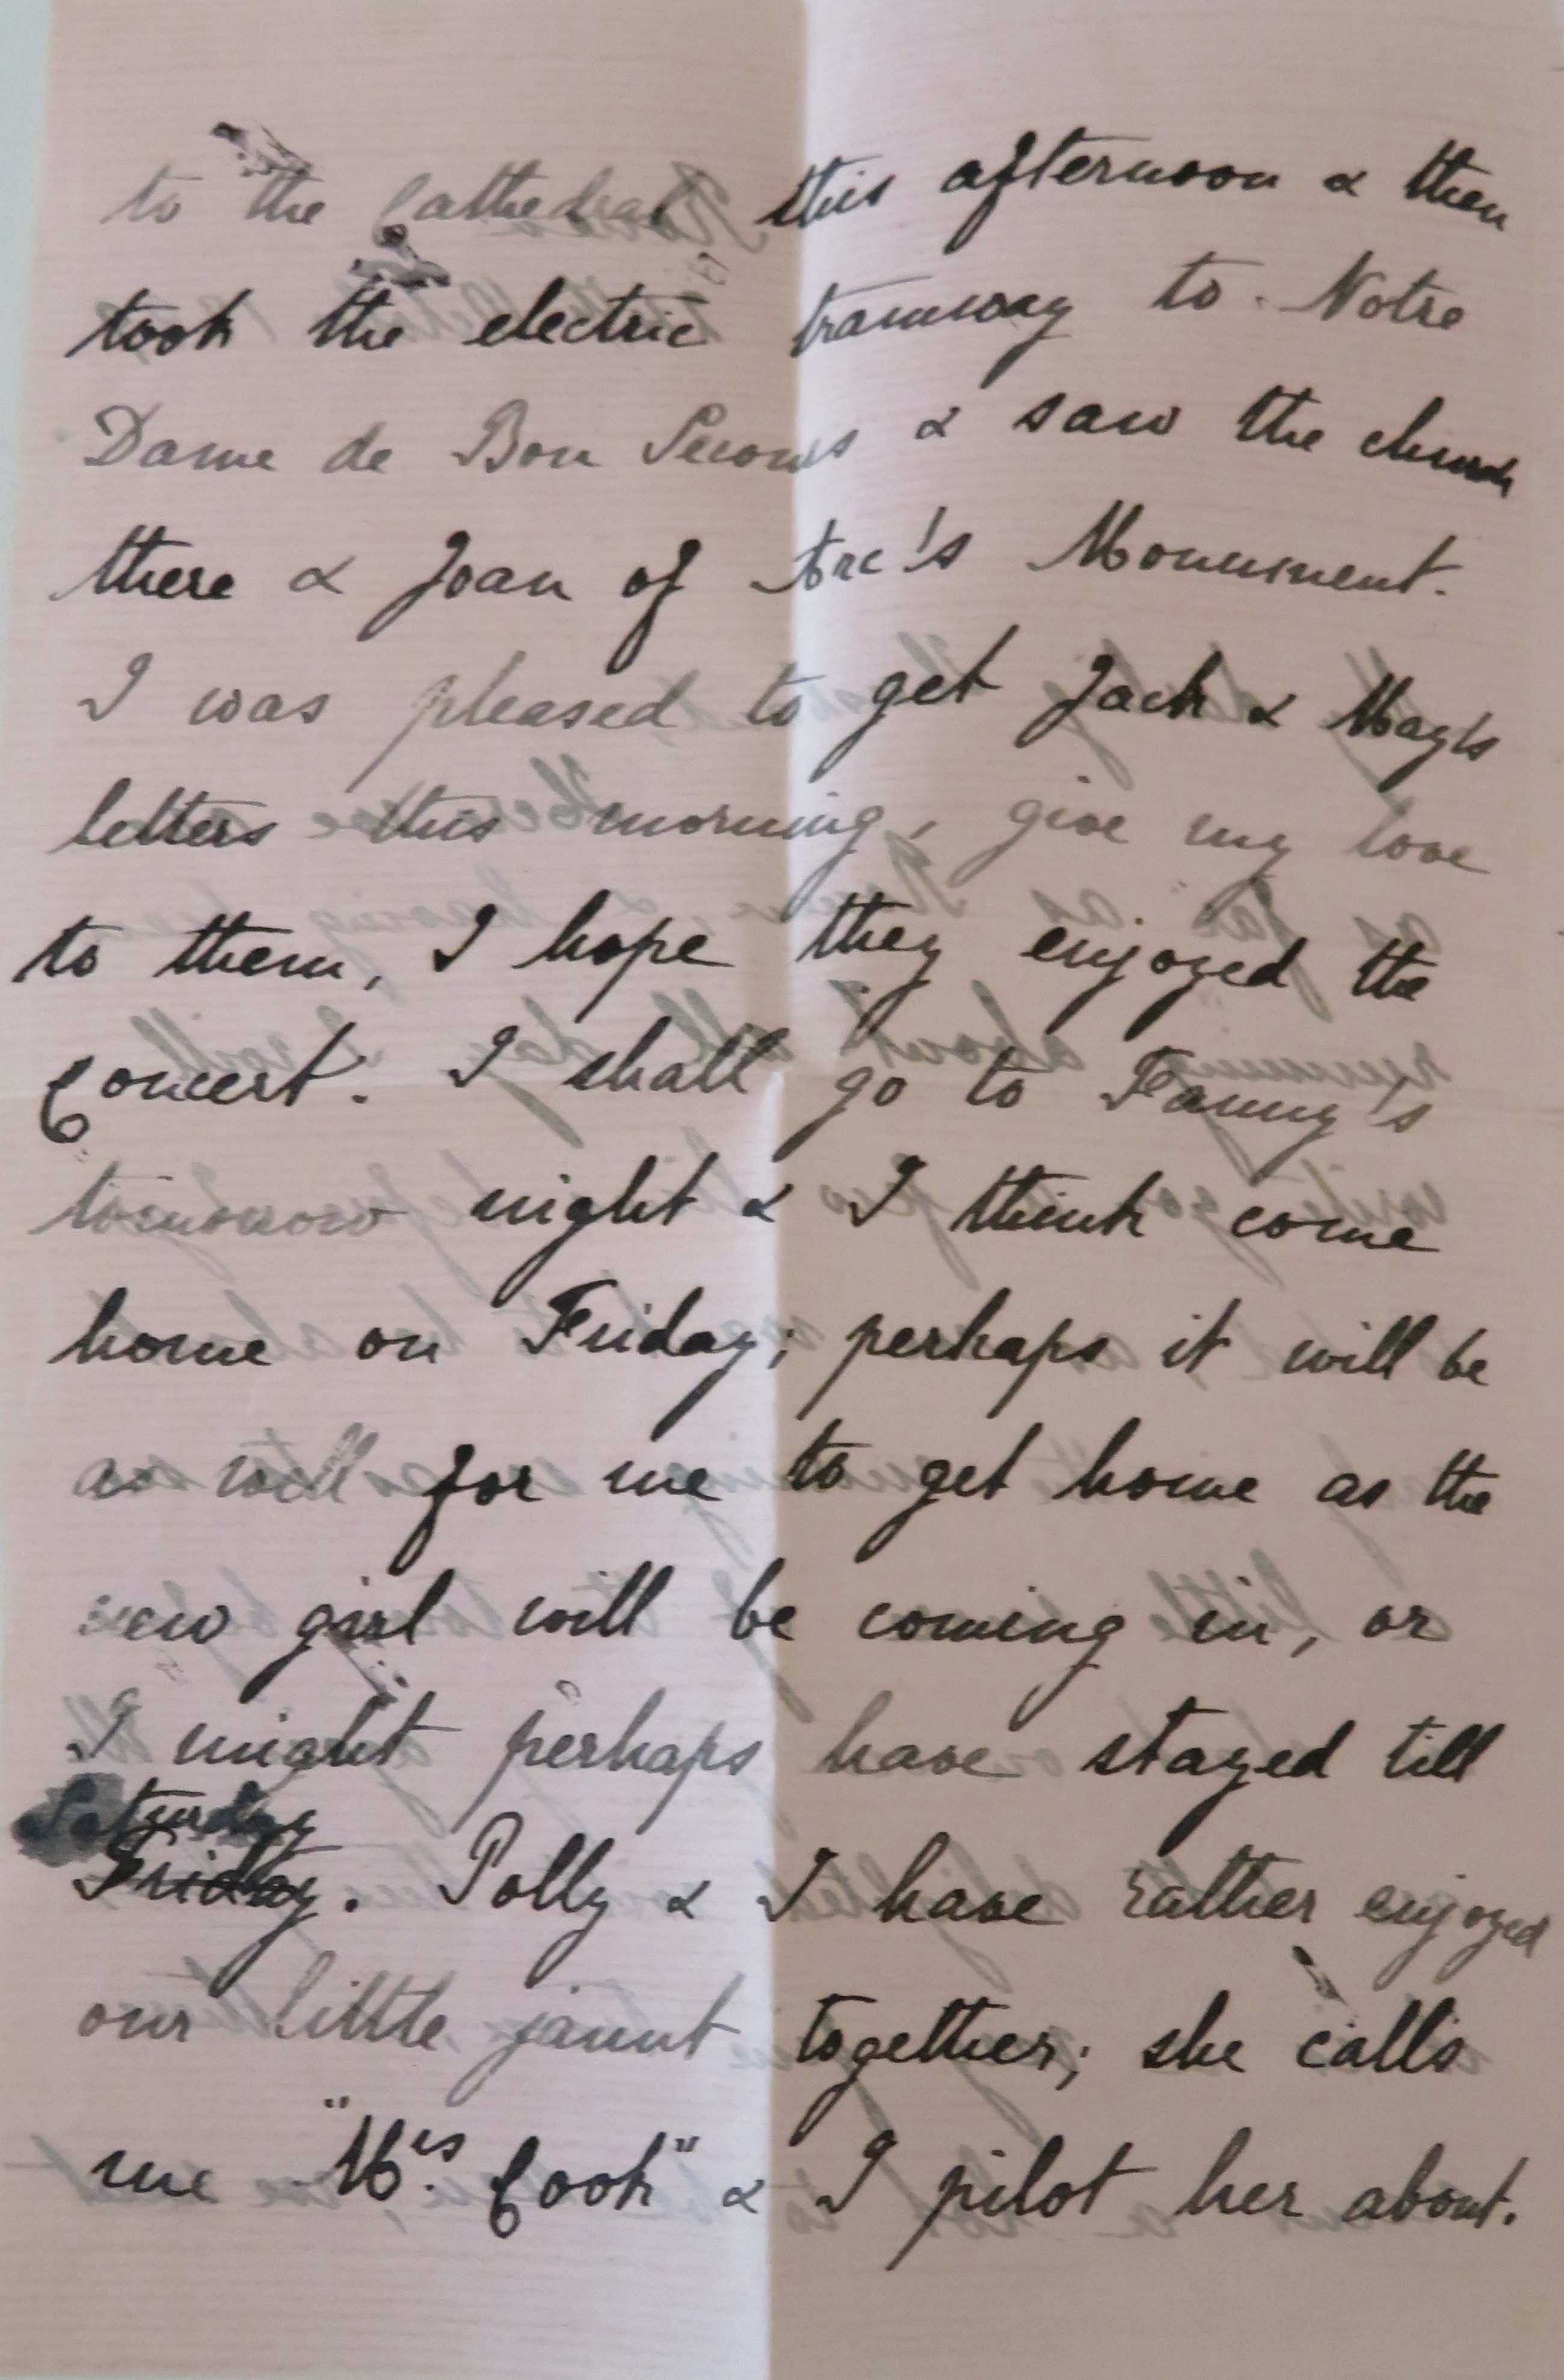 to the Cathedral this afternoon & then
took the electric tramway to Notre
Dame de Bon Secours & saw the church
there & Joan of Arc's Monument.
I was pleased to get Jack & May's
letters this morning, give my love
to them, I hope they enjoyed the
Concert. I shall go to Fanny's
tomorrow night & I think come
home on Friday; perhaps it will be
as well for me to get home as the
new girl will be coming in, or
I might perhaps have stayed till
Saturday
Friday. Polly & I have rather enjoyed
our little jaunt together; she calls
me "Mrs. Cook" & I pilot her about.